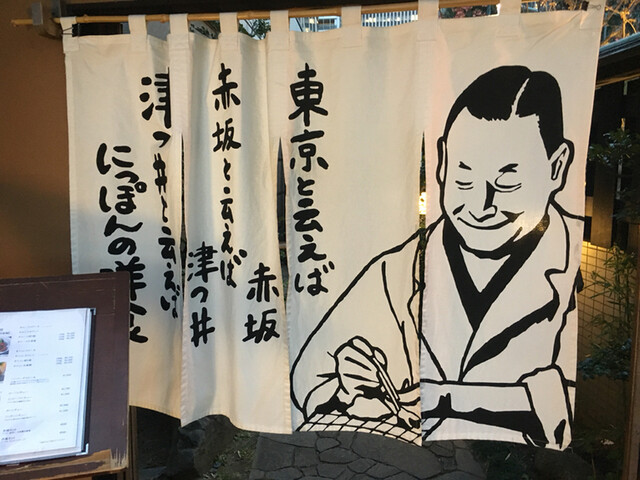 東京と云えば
赤坂
赤坂と云えば
津つ井
津つ井と云えば
にっぽんの洋食